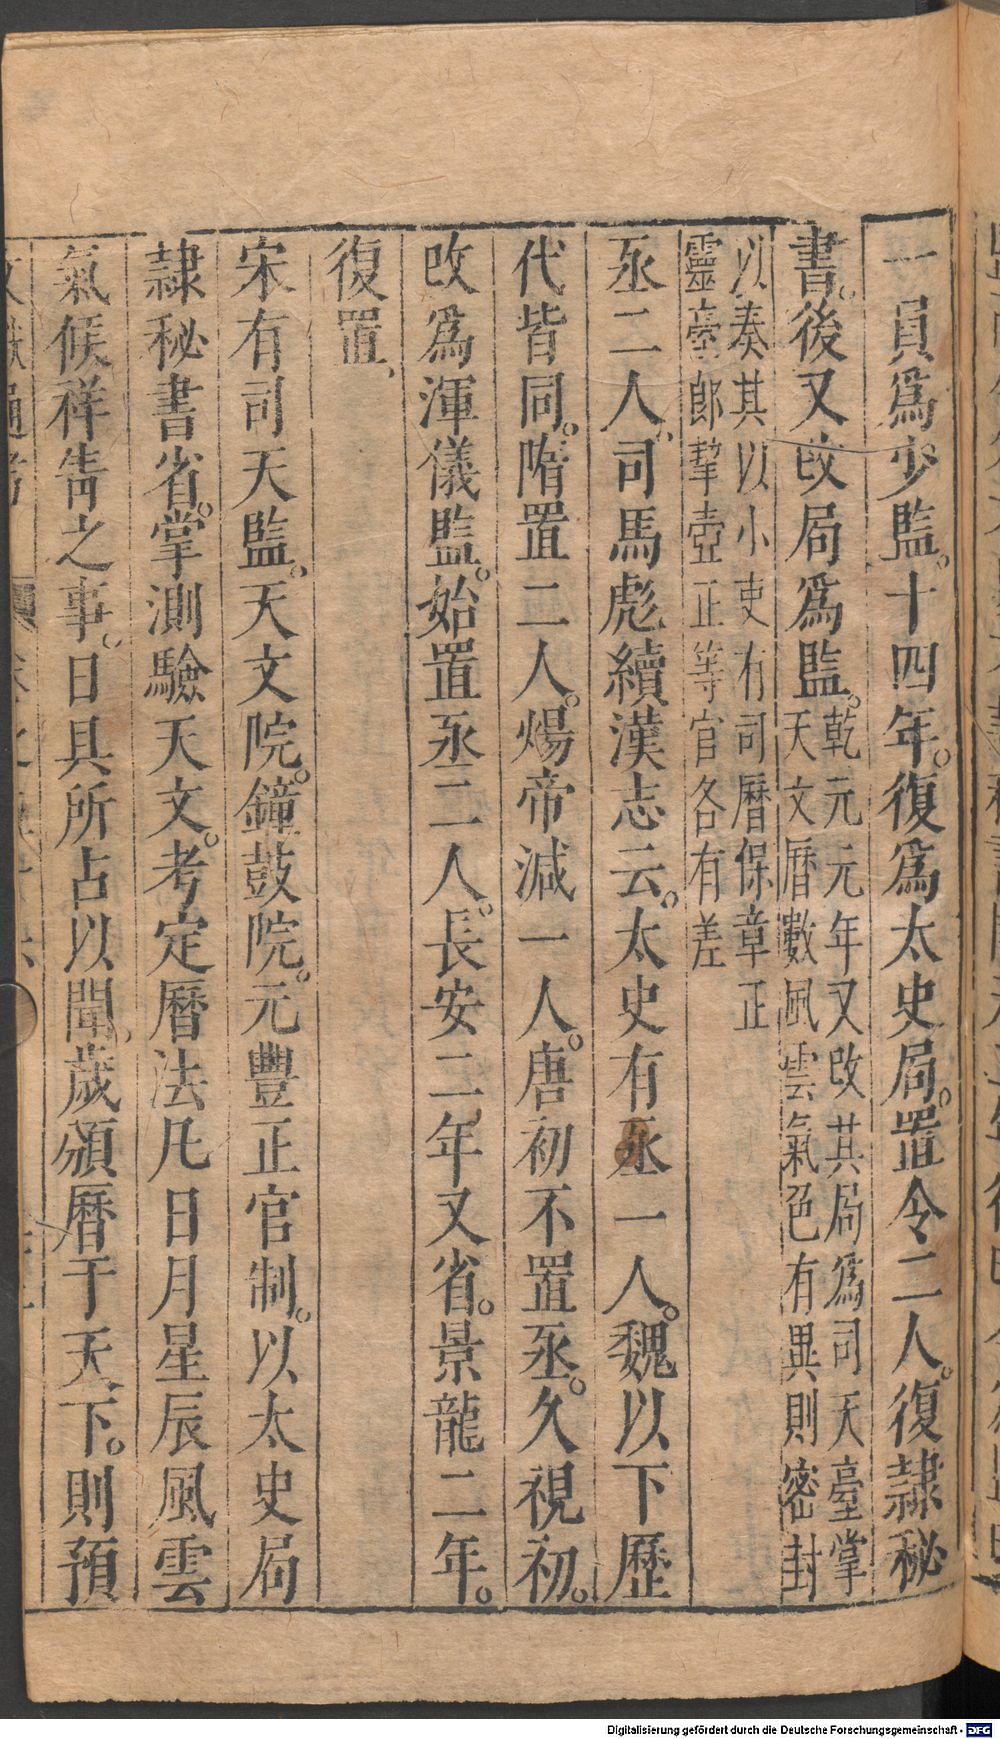 一員爲少監。十四年。復爲太史局。置令二人。復隷秘
書。後又改局爲監。乾元元年又改其局爲司天臺掌
天文曆數風雲氣色有異則密封
以奏其以小吏有司曆保章正
靈臺郎挈壺正等官各有差
丞二人、司馬彪續漢志云。太史有丞一人。魏以下歷
代皆同。隋置二人。煬帝減一人。唐初不置丞。久視初。
改爲渾儀監。始置丞二人。長安二年又省。景龍二年。
復置、
宋有司天監。天文院。鐘鼓院。元豐正官制。以太史局
隷秘書省。掌測驗天文。考定曆法凡日月星辰風雲
氣候祥眚之事。日具所占以聞。歲頒曆于天下。則預
Digitalisierung gefördert durch die Deutsche Forschungsgemeinschaft - DFG